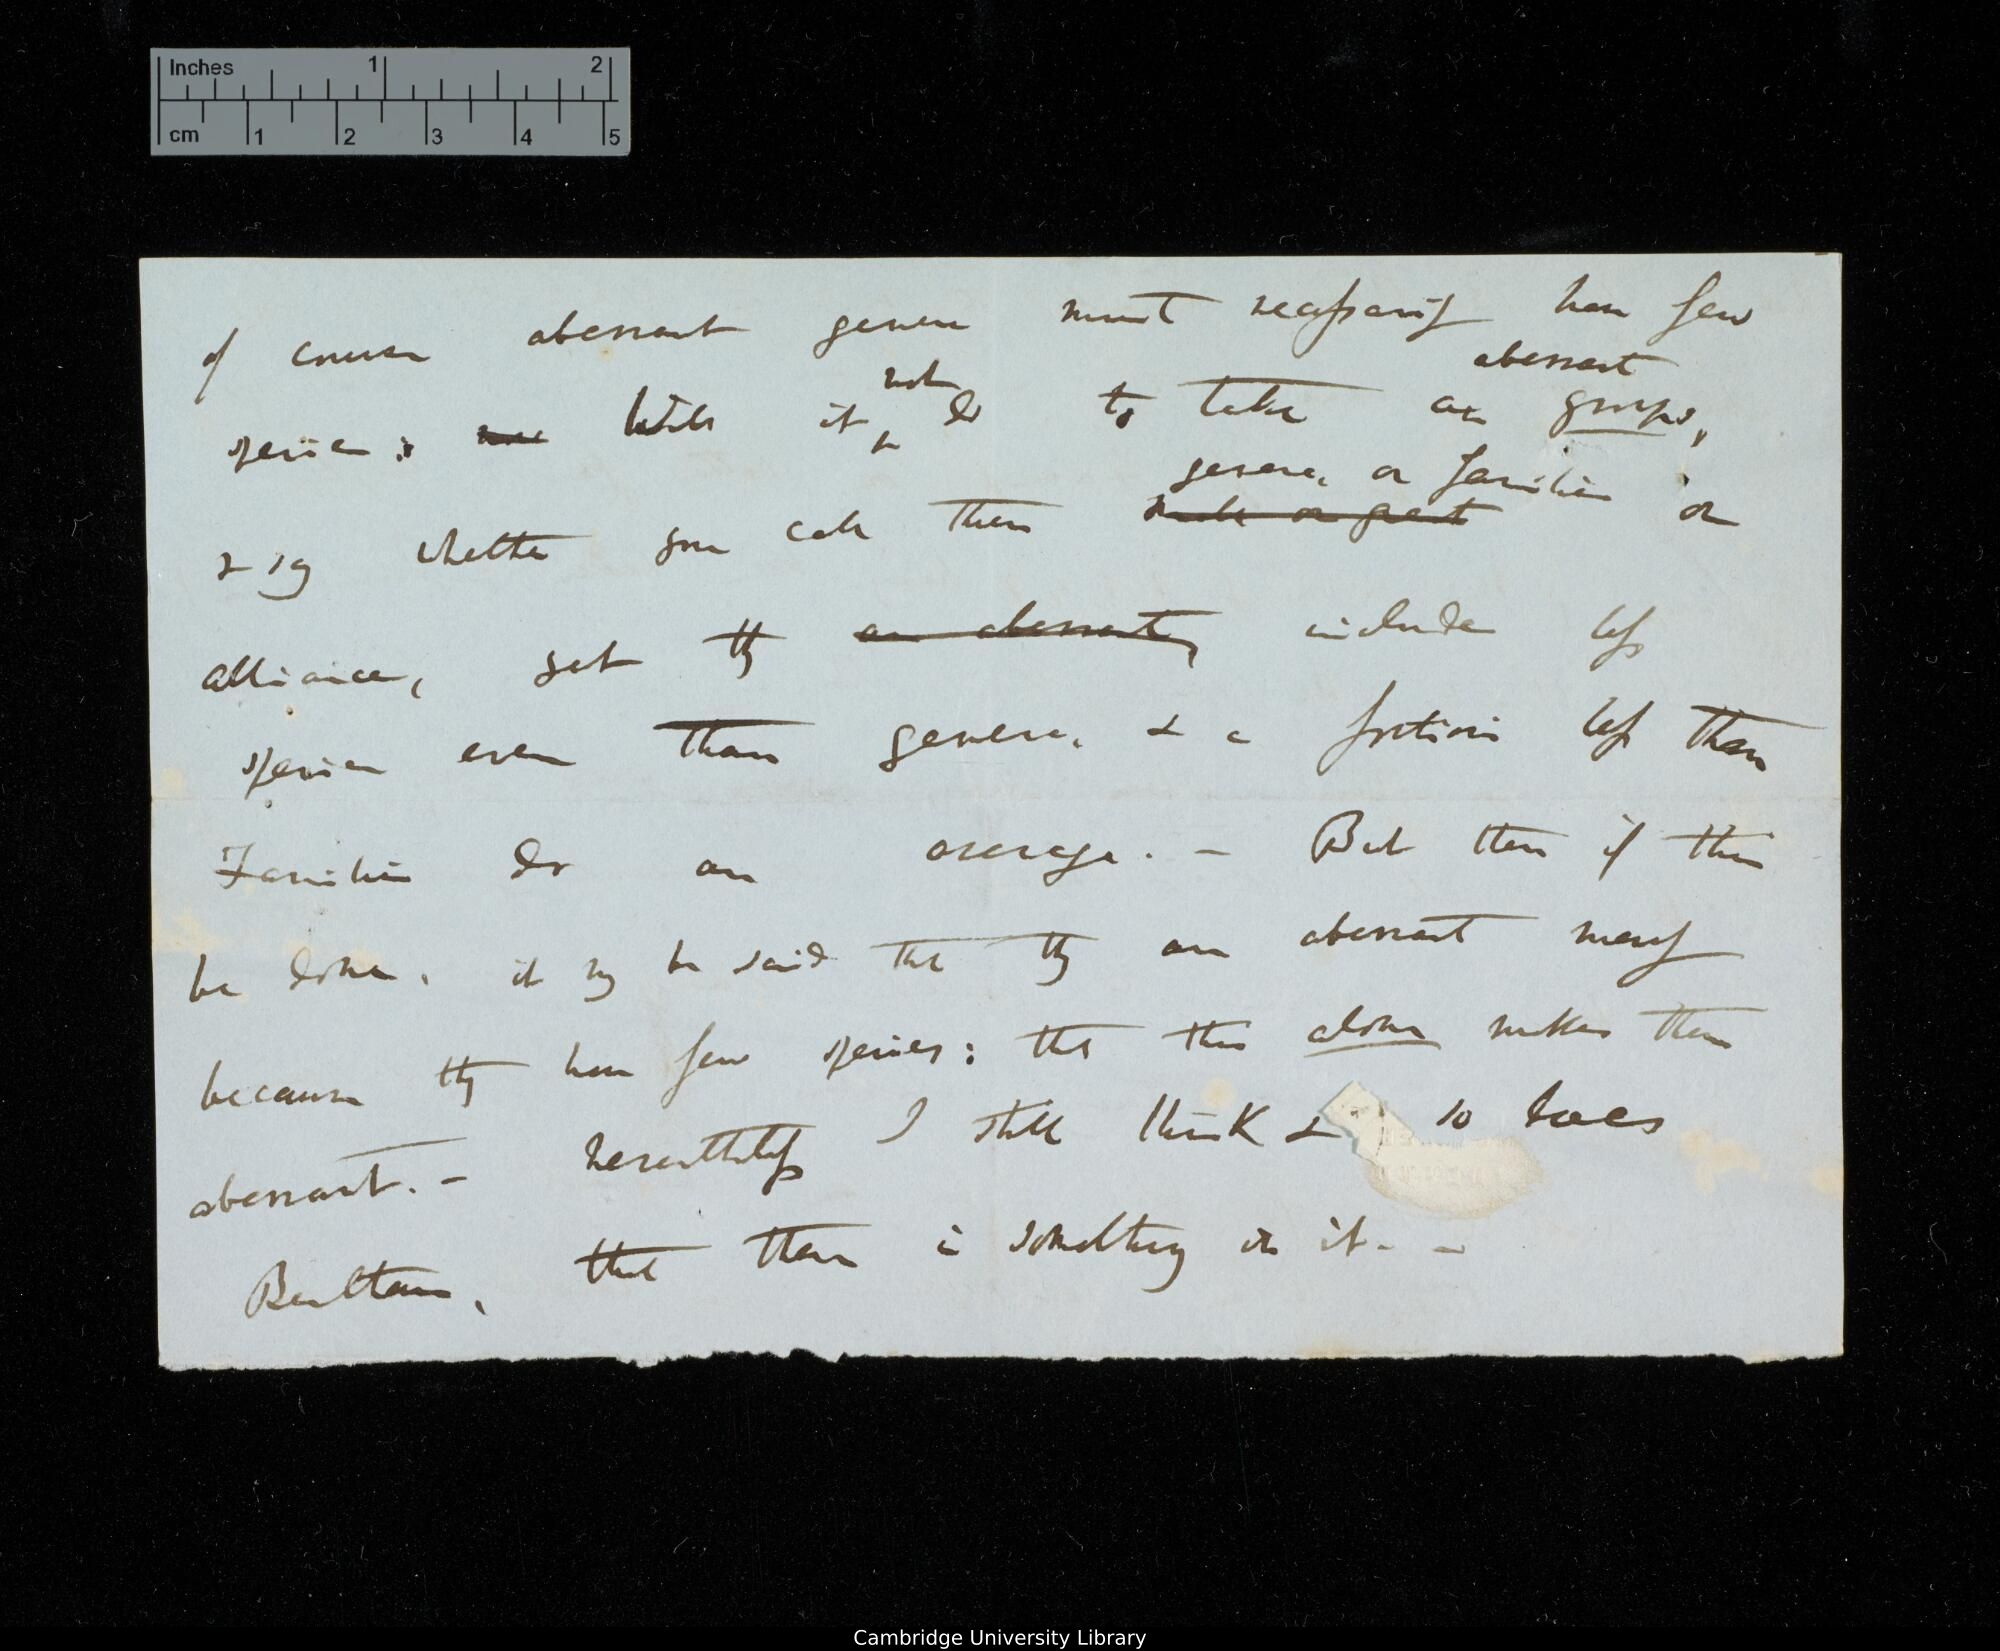 Inches 1 2
cm 1 2 3 4 5
of course aberrant genera must necessarily have few
aberrant
not
species: will it do to take an groups,
genera, or families
& say whether you call them or
alliance, yet they an aberrant, include less
species even than genera, & a fortiori less than
Families do on average. — But then if this
be done, it may be said that they are aberrant merely
because they have few species: that this alone makes them
aberrant. — nevertheless I still think & so does
Bentham, that there is something in it. —
Cambridge University Library